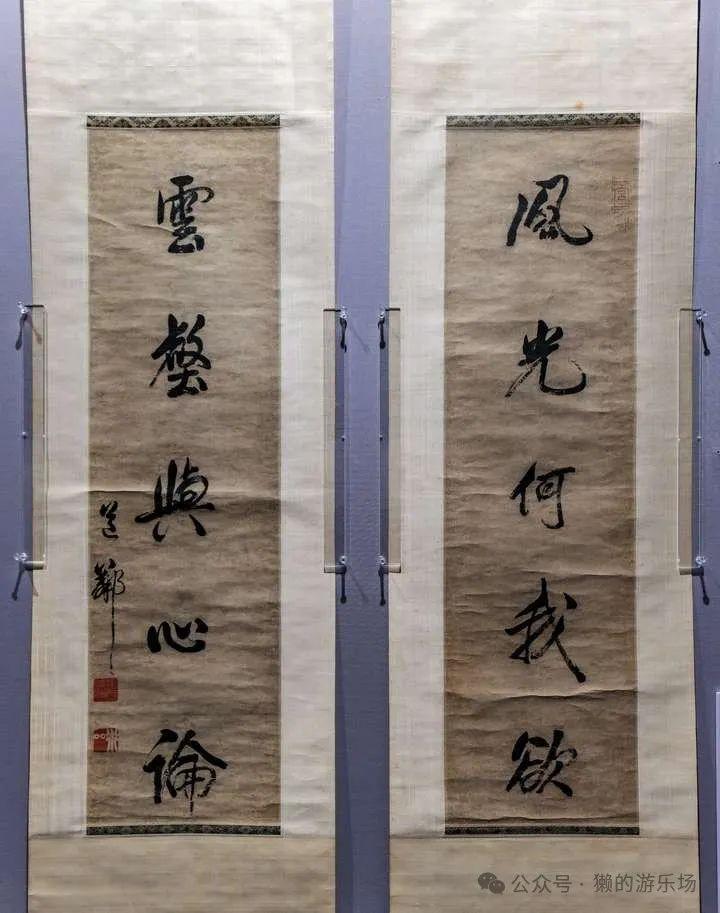 風光何我欲
雲壑與心論
公众号·獭的游乐场